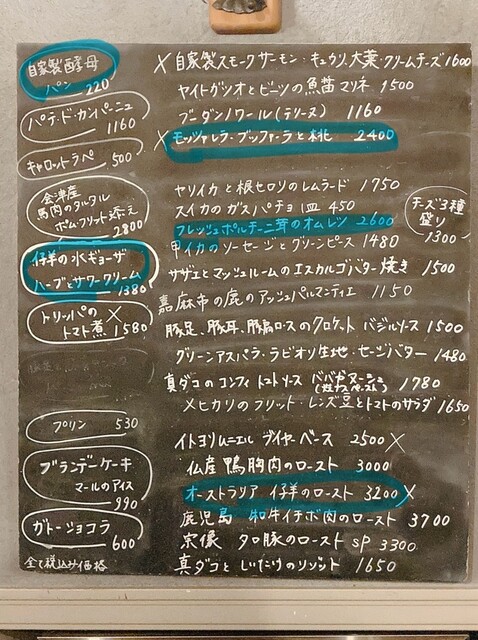 自家製酵母
パン 220
パテ・ド・カンパーニュ
1160
キャロットラペ 500
会津産
馬肉のタルタル
ポムフリット添え
2800
仔羊の水ギョーザ
ハーブとサワークリーム
1380
トリッパの ×
トマト煮 1580
プリン 530
ブランデーケーキ
マールのアイス
990
ガトーショコラ
600
全て税込み価格
×自家製スモークサーモン・キュウリ、大葉・クリームチーズ 1600
ヤイトガツオとビーツの魚醤マリネ 1500
ブーダンノワール(テリーヌ) 1160
×モッツァレラ・ブッファーラと桃 2400
ヤリイカと根セロリのレムラード 1750
スイカのガスパチョ 皿 450
フレッシュポルチーニ茸のオムレツ 2600
甲イカのソーセージとグリーンピース 1480
サザエとマッシュルームのエスカルゴバター焼き 1500
嘉麻市の鹿のアッシュパルマンティエ 1150
豚足、豚耳、豚肩ロースのクロケット バジルソース 1500
グリーンアスパラ・ラビオリ生地・セージバター 1480
真ダコのコンフィ トマトソース ババガヌージュ
(焼ナスペースト) 1780
×ヒカリのフリット・レンズ豆とトマトのサラダ 1650
イトヨリムニエル ブイヤーベース 2500 ×
仏産 鴨胸肉のロースト 3000
オーストラリア 仔羊のロースト 3200 ×
鹿児島 和牛イチボ肉のロースト 3700
宗像 タロ豚のロースト SP 3300
真ダコとしいたけのリゾット 1650
チーズ3種
盛り
1300